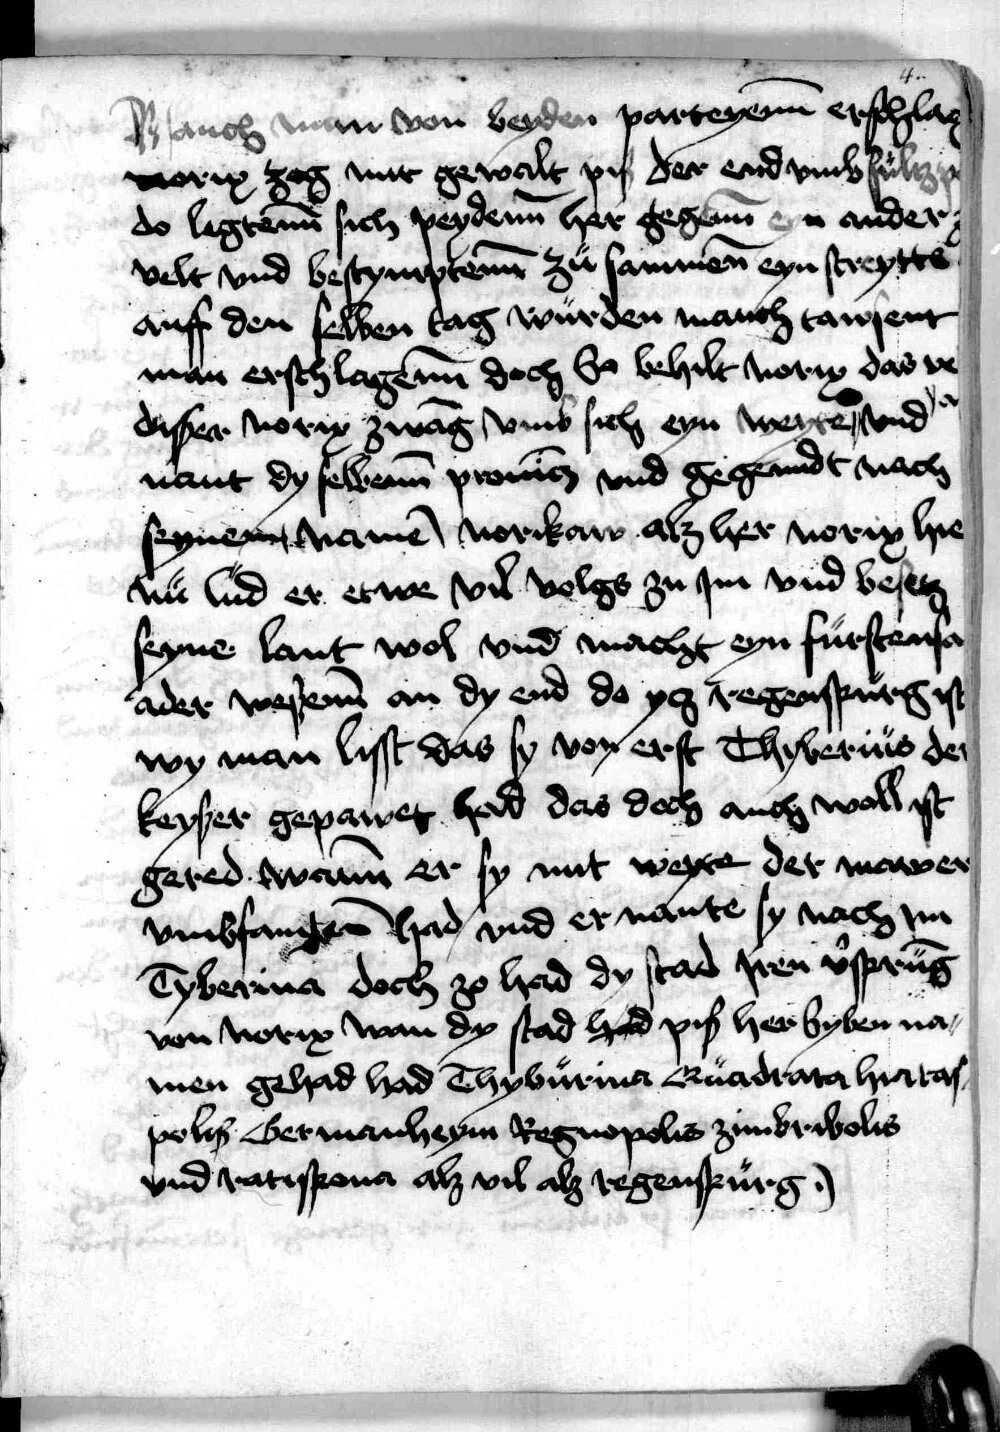 4.
manch man von beyden parteyenn erschlag
norix zog mit gewalt piß der end vmb sultz
do legtenn sich peydenn her gegenn eyn ander z
velt vnd bestymptenn zü sammen eyn streytts
auff den selben tag würden manch tawsent
man erschlagenn doch So behilt norix das ve
disser norix zwāg vmb sich eyn weyte vnd
nant dy selbenn prouincz vnd gegenndt nach
seynem name norikaw alz her norix hie
nü lüd er etwe vil volgs zu Im vnd besetz
seyne lant wol vnd macht eyn fürstensa
ader wesenn an dy end do ytz regenspürg ist
wy man lisst das sy von erst Thyberiüs der
keyser gepawet had das doch auch woll ist
gered wann er sy mit weyte der mawer
vmbfangen had vnd er nante sy nach im
Tyberina doch zo had dy stad Iren v̊sprüng
von norix wan dy stad had piß her Syben na〃
men gehad had Thybürina Quadrata hiatas〃
polis Germanheym Regnopolis zimbribolis
vnd ratispona alz vil alz regenspürg